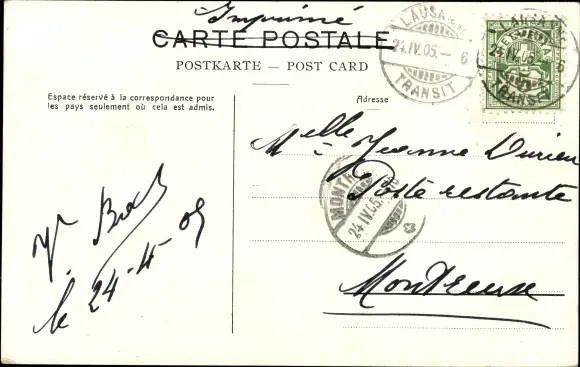 Imprimé
CARTE POSTALE
POSTKARTE — POST CARD
Espace réservé à la correspondance pour
les pays seulement où cela est admis.
Adresse
LAUSANNE
24.IV.05. — 6
TRANSIT
LAUSANNE
24.IV.05. — 6
TRANSIT
Melle Jeanne Durieu
Poste restante
MONTR
24.IV.05.
Montreux
le 24-4-05